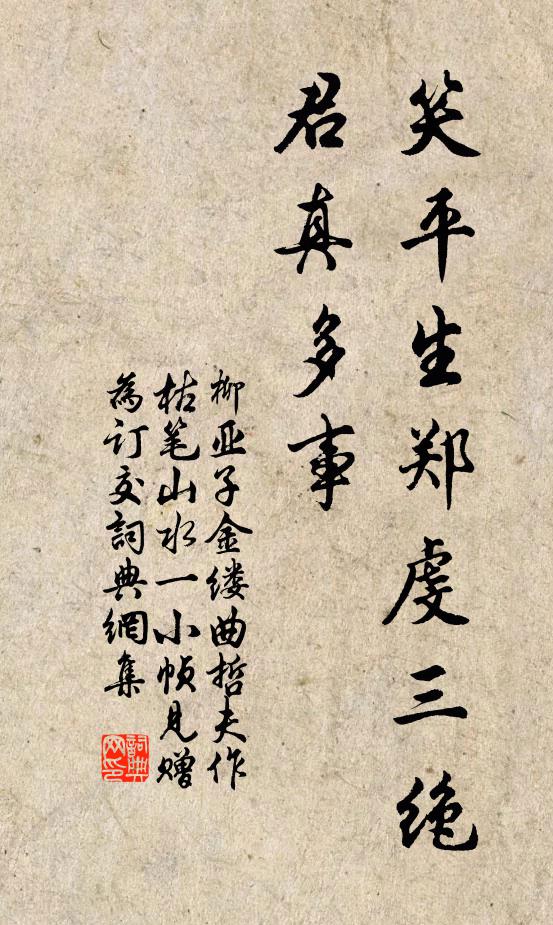 笑平生郑虔三绝
君真多事
柳亚子金缕曲哲夫作
枯笔山水一小帧见赠
為订交詞典網集
詞典网印